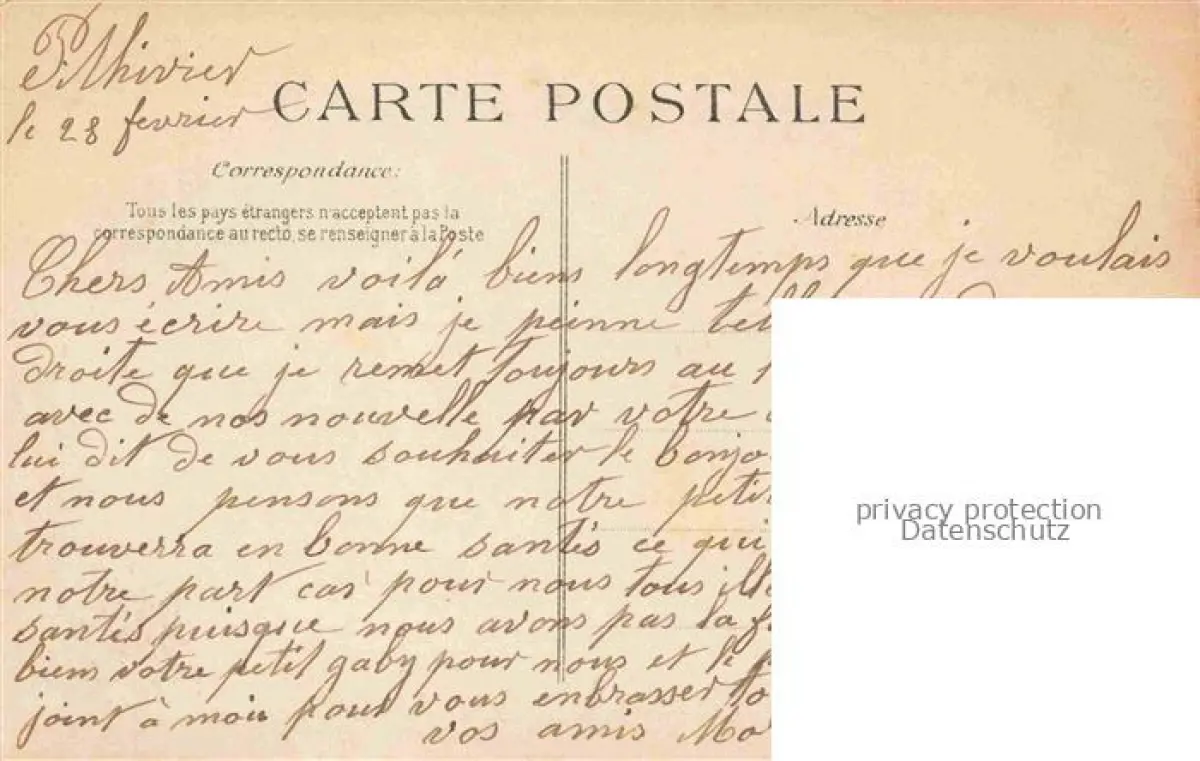 Pithivier
le 28 fevrier
CARTE POSTALE
Correspondance:
Tous les pays étrangers n'acceptent pas la
correspondance au recto, se renseigner à la Poste
Adresse
Chers Amis voilà biens longtemps que je voulais
vous écrire mais je peinne
droite que je remet toujours au
avec de nos nouvelle par votre
lui dit de vous souhaiter le
et nous pensons que notre
trouverra en bonne santés ce qui
notre part car pour nous tous
santés puisque nous avons pas la
biens votre petit gaby pour nous et le
joint à moi pour vous enbrasser
vos amis
privacy protection
Datenschutz